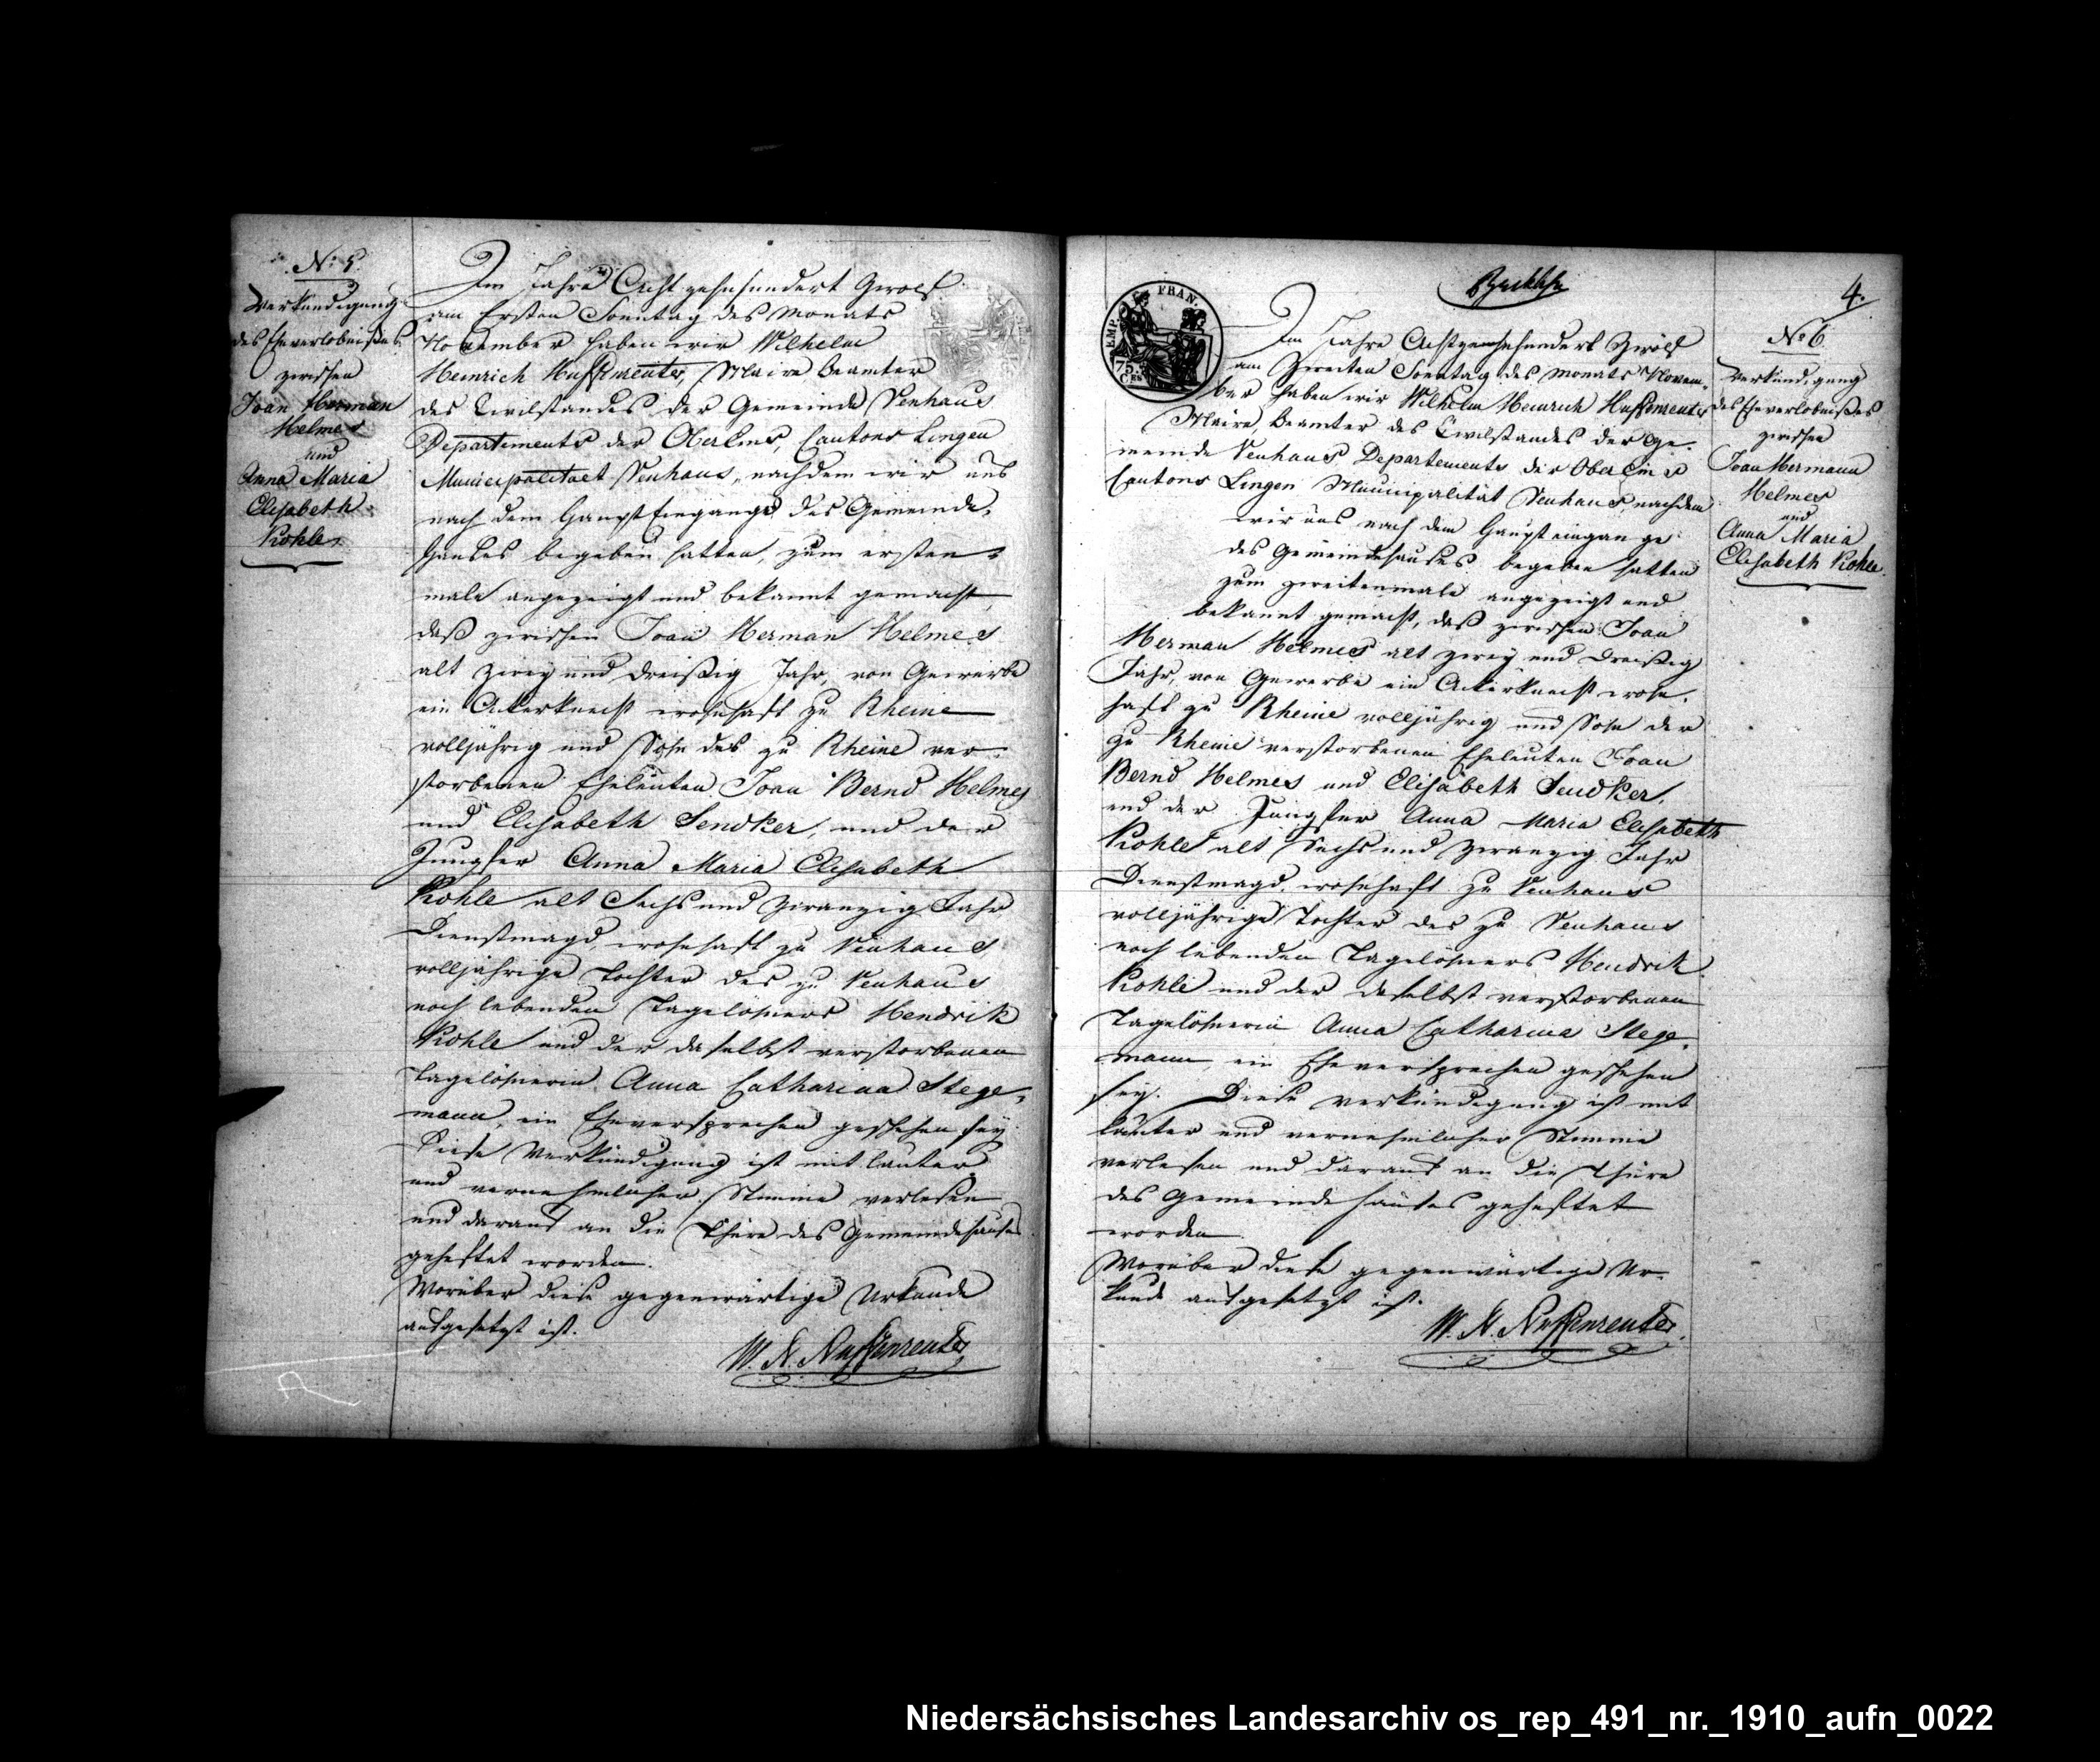 N: 5.
Verkündigung
des Eheverlöbnißes
zwischen
Joan Herman
Helmes
und
Anna Maria
Elisabeth
Kohle
Im Jahre Achtzehnhundert Zwölf
am Ersten Sonntag des Monats
November haben wir Wilhelm
Heinrich Maire Beamter
des Civilstandes der Gemeinde Venhaus
Departements der Oberems, Cantons Lingen
Municipalitaet Venhaus, nachdem wir uns
nach dem Haupt Eingange des Gemeinde,
Hauses begeben hatten, zum ersten
male angezeigt und bekannt gemacht,
daß zwischen Joan Herman Helmes
alt zwey und dreißig Jahr, von Gewerbe
ein Ackerknecht wohnhaft zu Rheine
volljährig und Sohn des zu Rheine ver
storbenen Eheleuten Joan Bernd Helmes
und Elisabeth Sendker, und der
Jungfer Anna Maria Elisabeth
Kohle alt Sechs und zwanzig Jahr
Dienstmagd, wohnhaft zu Venhaus
volljährige Tochter des zu Venhaus
noch lebenden Tagelöhners Hendrik
Kohle und der daselbst verstorbenen
Tagelöhnerin Anna Catharina Stege,
mann, ein Eheversprechen geschehen sey
Diese Verkündigung ist mit lauter
und vernehmlicher Stimme verlesen
und darauf an die Thüre des Gemeindehauses
geheftet worden.
Worüber diese gegenwärtige Urkunde
aufgesetzt ist.
W. H.
4.
EMP. FRAN.
75.
Cts
Im Jahre Achtzehnhundert Zwölf
am Zweiten Sonntag des Monats Novem,
ber haben wir Wilhelm Heinrich
Maire, Beamter des Civilstandes der Ge,
meinde Venhaus Departements der Oberems
Cantons Lingen Municipalität Venhaus, nachdem
wir uns nach dem Haupteingange
des Gemeindehauses begeben hatten
zum zweitenmale angezeigt und
bekannt gemacht, daß zwischen Joan
Herman Helmes alt zwey und dreißig
Jahr, von Gewerbe ein Ackerknecht wohn,
haft zu Rheine volljährig und Sohn der
zu Rheine verstorbenen Eheleuten Joan
Bernd Helmes und Elisabeth Sendker,
und der Jungfer Anna Maria Elisabeth
Kohle alt Sechs und zwanzig Jahr
Dienstmagd, wohnhaft zu Venhaus
volljährige Tochter des zu Venhaus
noch lebenden Tagelöhners Hendrik
Kohle und der daselbst verstorbenen
Tagelöhnerin Anna Catharina Stege,
mann, ein Eheversprechen geschehen
sey. Diese Verkündigung ist mit
lauter und vernehmlicher Stimme
verlesen und darauf an die Thüre
des Gemeindehauses geheftet
worden
Worüber diese gegenwärtige Ur,
kunde aufgesetzt ist.
W. H.
No 6
Verkündigung
des Eheverlöbnißes
zwischen
Joan Hermann
Helmes
und
Anna Maria
Elisabeth Kohle.
Niedersächsisches Landesarchiv os_rep_491_nr._1910_aufn_0022